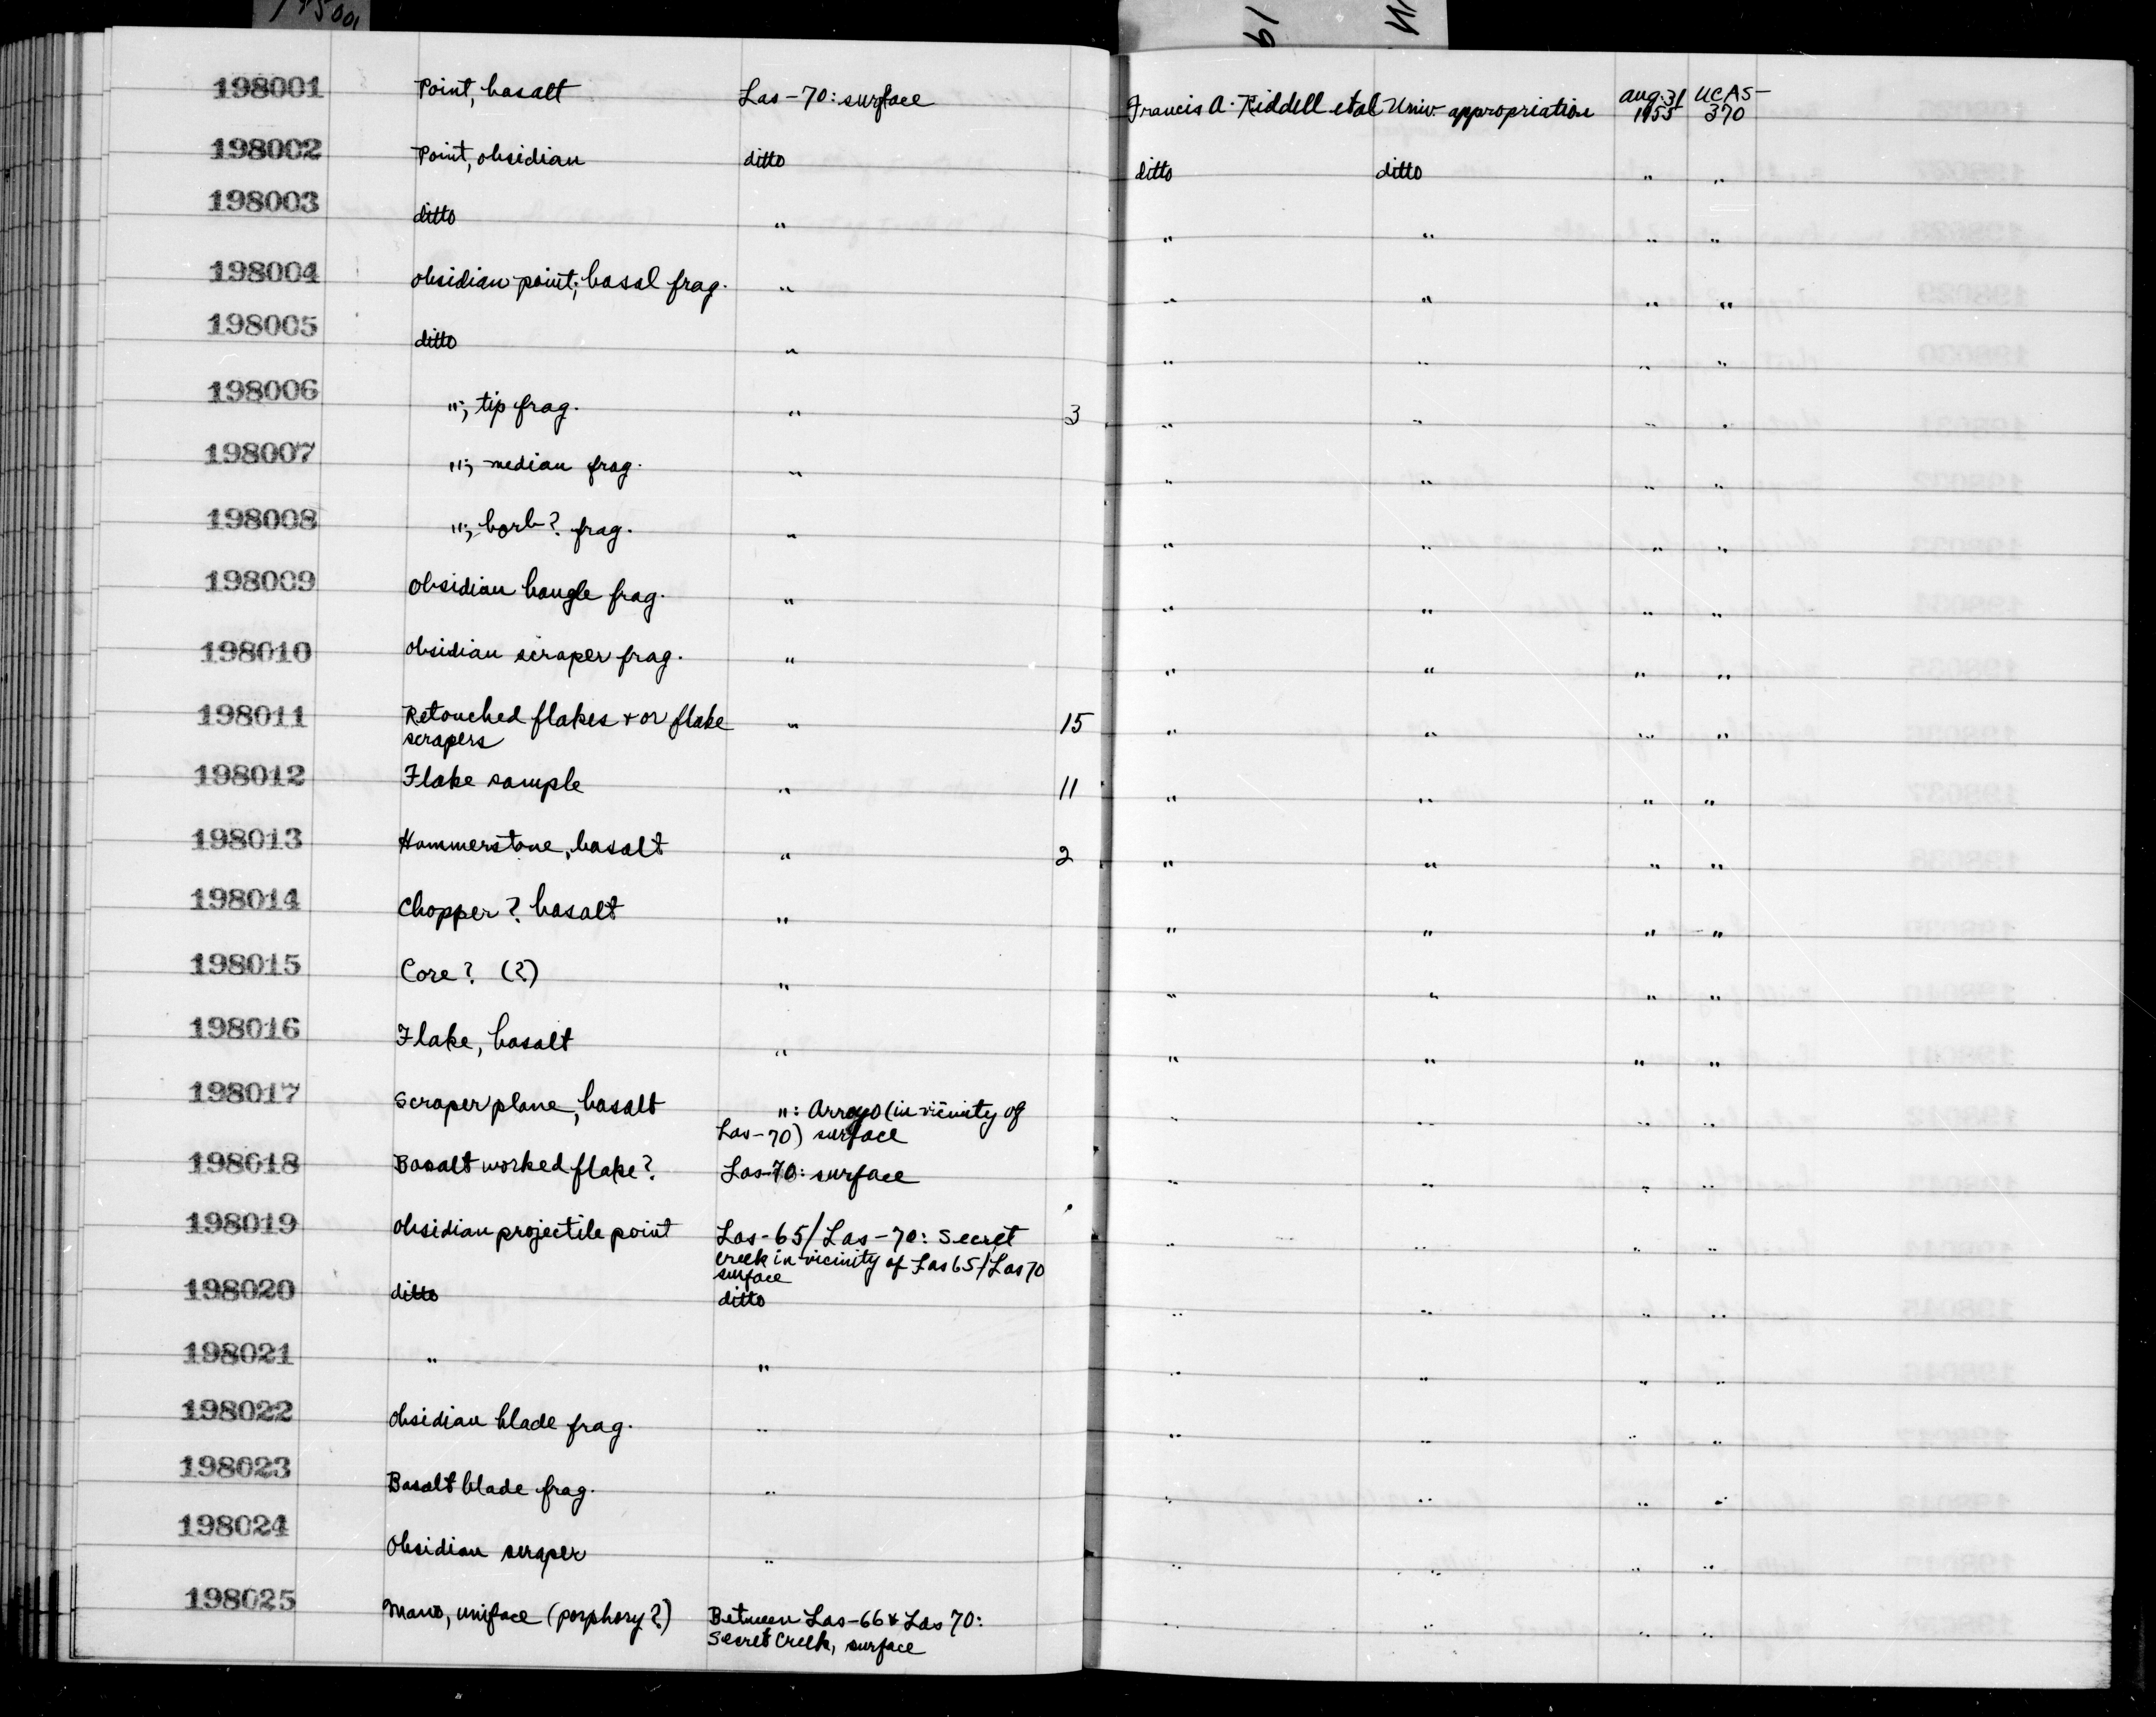 198001 Point, basalt Las-70: surface Francis A. Riddell et al Univ. appropriation Aug. 31 1955 UCAS-370
198002 Point, obsidian ditto ditto ditto " "
198003 ditto " " " " "
198004 Obsidian point; basal frag. " " " " "
198005 ditto " " " " "
198006 "; tip frag. " 3 " " " "
198007 "; median frag. " " " " "
198008 "; barb? frag. " " " " "
198009 Obsidian bangle frag. " " " " "
198010 Obsidian scraper frag. " " " " "
198011 Retouched flakes + or flake " 15 " " " "
scrapers
198012 Flake sample " 11 " " " "
198013 Hammerstone, basalt " 2 " " " "
198014 Chopper? basalt " " " " "
198015 Core? (?) " " " " "
198016 Flake, basalt " " " " "
198017 Scraper plane, basalt ": Arroyo (in vicinity of " " " "
Las-70) surface
198018 Basalt worked flake? Las-70: surface " " " "
198019 Obsidian projectile point Las-65/Las-70: Secret " " " "
creek in vicinity of Las 65/Las 70
surface
198020 ditto ditto " " " "
198021 " " " " " "
198022 Obsidian blade frag. " " " " "
198023 Basalt blade frag. " " " " "
198024 Obsidian scraper " " " " "
198025 Mano, uniface (porphory?) Between Las-66 & Las 70: " " " "
Secret Creek, surface